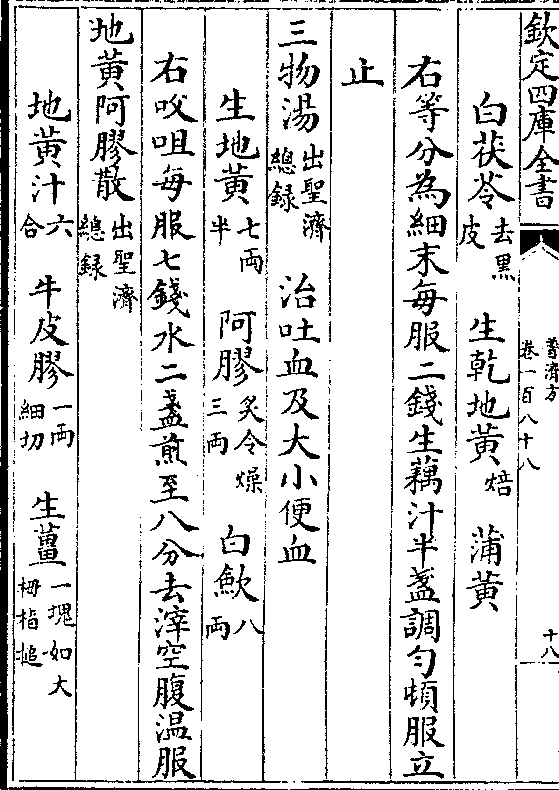 欽定四庫全書
普濟方
卷一百八十八
十八
白茯苓去黑皮 生乾地黃焙 蒲黃
右等分為細末每服二錢生藕汁半盞調勻頓服立
止
三物湯出聖濟總録 治吐血及大小便血
生地黃七両半 阿膠炙令燥三両 白歛八両
右㕮咀每服七錢水二盞煎至八分去滓空腹温服
地黃阿膠散出聖濟總録
地黃汁六合 牛皮膠一両細切 生薑一塊如大拇指搥